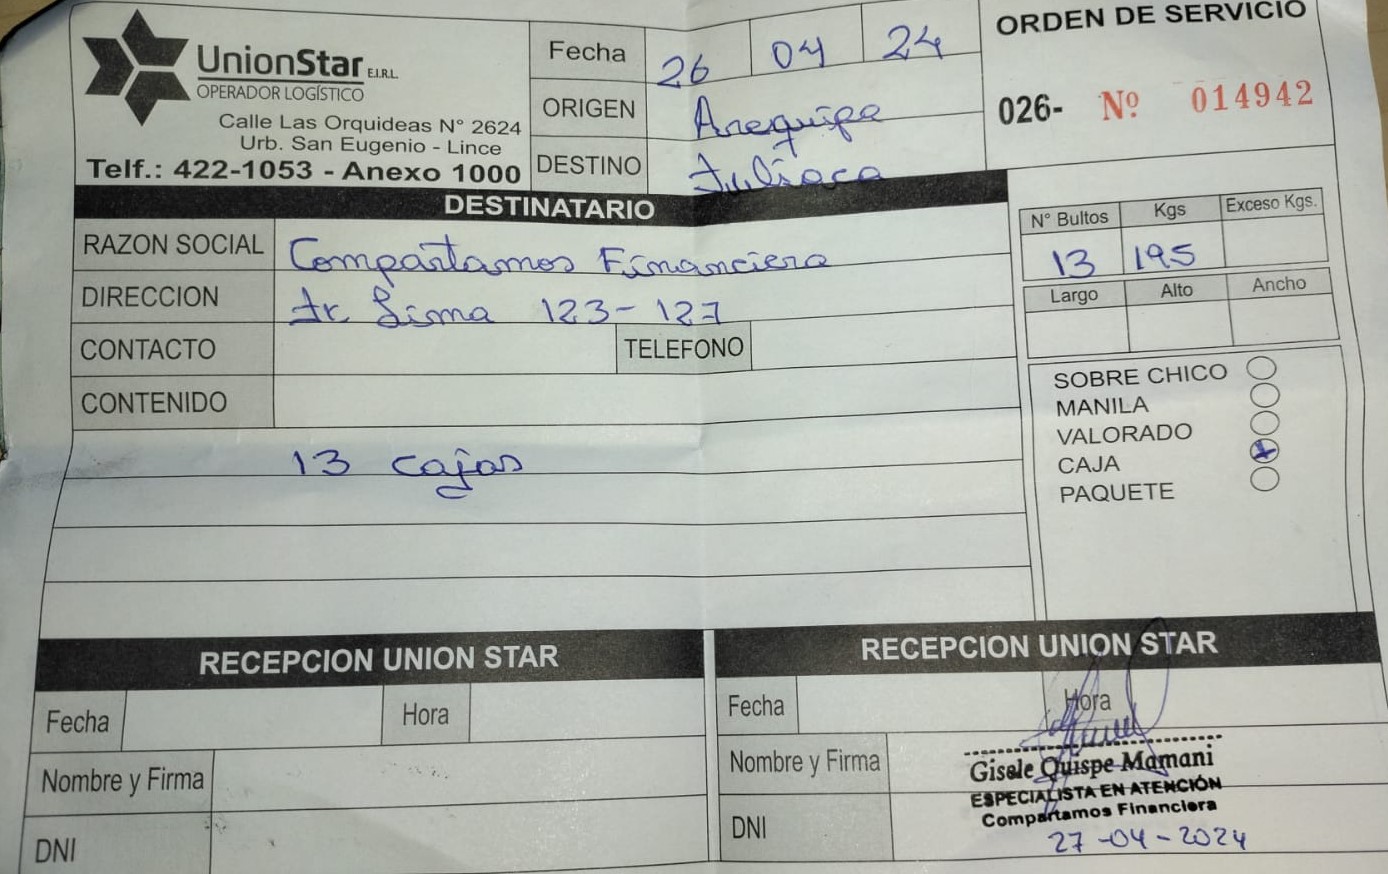 UnionStar E.I.R.L.
OPERADOR LOGÍSTICO
Calle Las Orquideas N° 2624
Urb. San Eugenio - Lince
Telf.: 422-1053 - Anexo 1000
Fecha 26 04 24
ORIGEN Arequipa
DESTINO Juliaca
ORDEN DE SERVICIO
026- Nº 014942
DESTINATARIO
RAZON SOCIAL Compartamos Financiera
DIRECCION Jr. Lima 123-127
CONTACTO TELEFONO
CONTENIDO
13 cajas
N° Bultos Kgs Exceso Kgs.
13 195
Largo Alto Ancho
SOBRE CHICO
MANILA
VALORADO
CAJA
PAQUETE
RECEPCION UNION STAR
Fecha Hora
Nombre y Firma
DNI
RECEPCION UNION STAR
Fecha Hora
Nombre y Firma
DNI
Gisele Quispe Mamani
ESPECIALISTA EN ATENCIÓN
Compartamos Financiera
27-04-2024